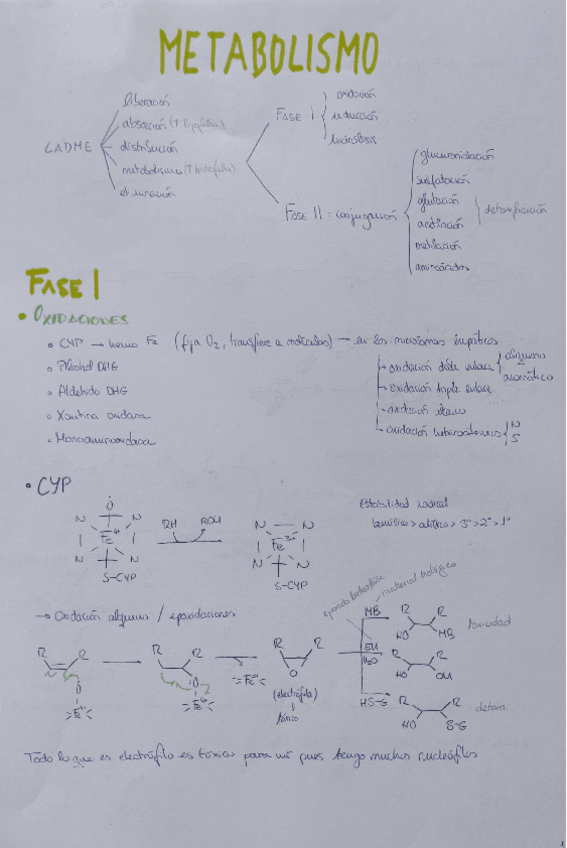 METABOLISMO
LADME
liberación
absorción (↑ lipofilia)
distribución
metabolismo (↑ hidrofilia)
eliminación
FASE I
oxidación
reducción
hidrólisis
FASE II: conjugación
glucuronidación
sulfatación
acetilación
metilación
aminoácidos
detoxificación
FASE I
• OXIDACIONES
• CYP → hemo Fe (fija O₂, transfiere a moléculas) → en los microsomas hepáticos
• Alcohol DHG
• Aldehído DHG
• Xantina oxidasa
• Monoaminooxidasa
oxidación doble enlace
alqueno
aromático
oxidación triple enlace
oxidación alcano
oxidación heteroátomos
N
S
• CYP
O
N N
Fe⁴⁺
N N
S-CYP
RH ROH
N N
Fe³⁺
N N
S-CYP
Estabilidad radical
bencílico > alílico > 3º > 2º > 1º
→ Oxidación alqueno / epoxidaciones
R R
O
R R
O
R R
O
(electrófilo)
↓
tóxico
epóxido hidrolasa
material biológico
MB
EH
H₂O
HS-G
R R
HO MB
toxicidad
R R
HO OH
R R
HO S-G
detox
Todo lo que es electrófilo es tóxico para mí pues tengo muchos nucleófilos